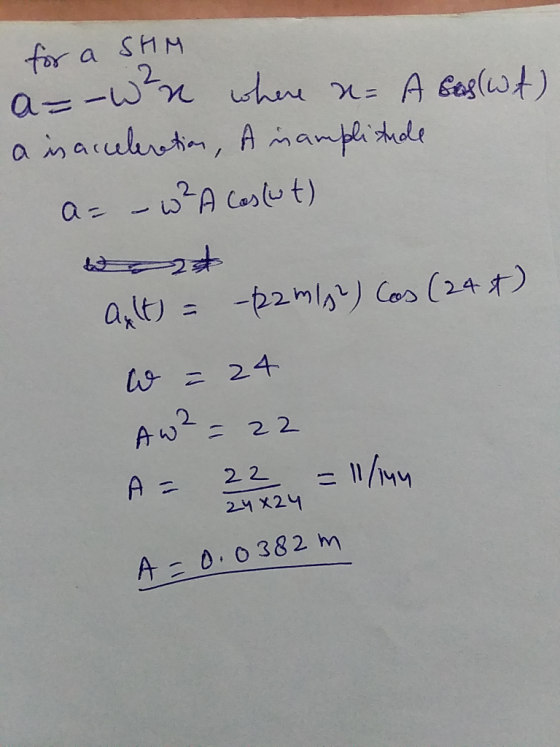 for a SHM
a = -ω²x where x = A cos(ωt)
a is acceleration, A is amplitude
a = -ω²A cos(ωt)
aₓ(t) = -(22 m/s²) cos(24 t)
ω = 24
Aω² = 22
A = 22/(24×24) = 11/144
A = 0.0382 m